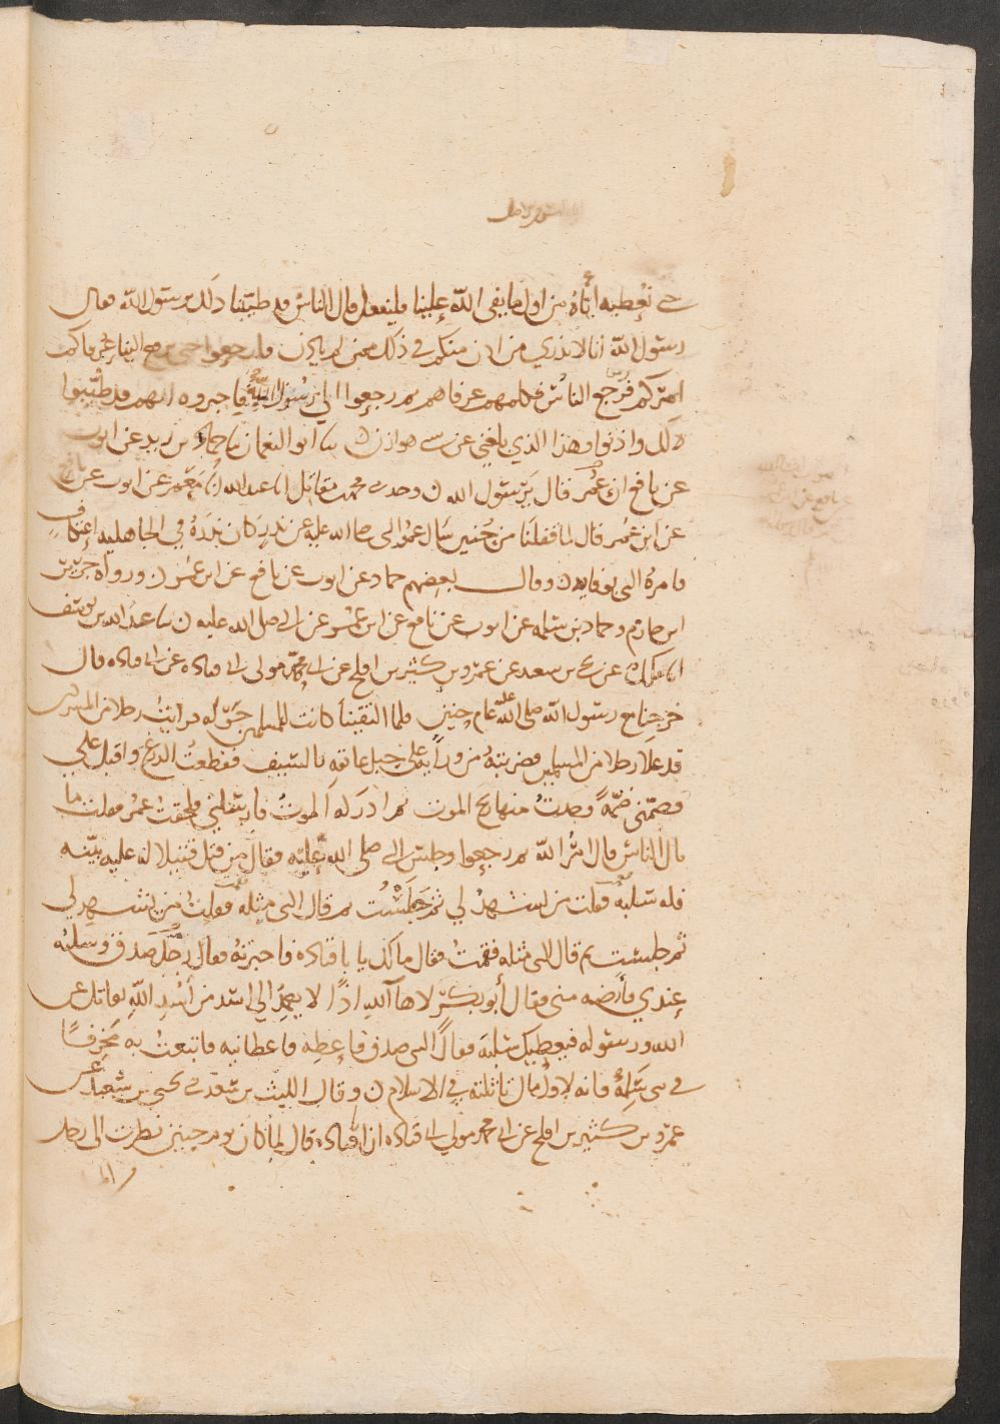 حتى نعطيه اياه من اول ما يفى الله علينا فليفعل فقال الناس قد طيبنا ذلك يرسول الله فقال
رسول الله انا لا ندري من اذن منكم في ذلك ممن لم ياذن فارجعوا حتى يرفع الينا عرفاؤكم
امركم فرجع الناس فكلمهم عرفاهم ثم رجعوا الى رسول الله فاخبروه انهم قد طيبوا
ذلك واذنوا وهذا الذي بلغني عن سبي هوازن ن ثنا ابو النعمان ثنا حماد بن زيد عن ايوب
عن نافع ان عمر قال يرسول الله ن وحدثني محمد بن مقاتل انا عبد الله انا معمر عن ايوب عن نافع
عن ابن عمر قال لما قفلنا من حنين سال عمر النبي صلى الله عليه عن نذر كان نذره في الجاهليه اعتكاف
فامره النبي بوفايه ن وقال بعضهم حماد عن ايوب عن نافع عن ابن عمر ن ورواه جرير
ابن حازم وحماد بن سلمه عن ايوب عن نافع عن ابن عمر عن النبي صلى الله عليه ن ثنا عبد الله بن يوسف
انا ملك عن يحيى بن سعد عن عمرو بن كثير بن افلح عن ابي محمد مولى ابي قتاده عن ابي قتاده قال
خرجنا مع رسول الله صلى الله عليه عام حنين فلما التقينا كانت للمسلمين جولة فرايت رجلا من المشركين
قد علا رجلا من المسلمين فضربته من ورائه على حبل عاتقه بالسيف فقطعت الدرع واقبل علي
فضمني ضمة وجدت منها ريح الموت ثم ادركه الموت فارسلني فلحقت عمر فقلت ما
بال الناس قال امر الله ثم رجعوا وجلس النبي صلى الله عليه فقال من قتل قتيلا له عليه بينه
فله سلبه فقلت من يشهد لي ثم جلست ثم قال النبي مثله فقلت من يشهد لي
ثم جلست ثم قال النبي مثله فقمت فقال مالك يا با قتاده فاخبرته فقال رجل صدق وسلبه
عندي فارضه مني فقال أبو بكر لاها آلله اذا لا يعمد الى اسد من أسد الله يقاتل عن
الله ورسوله فيعطيك سلبه فقال النبي صدق فاعطه فاعطانيه فابتعت به مخرفا
في بني سلمة فانه لاول مال تاثلته في الاسلام ن وقال الليث بن سعد حدثني يحيى بن سعيد عن
عمرو بن كثير بن افلح عن ابي محمد مولى ابي قتاده ان ابا قتاده قال لما كان يوم حنين نظرت الى رجل